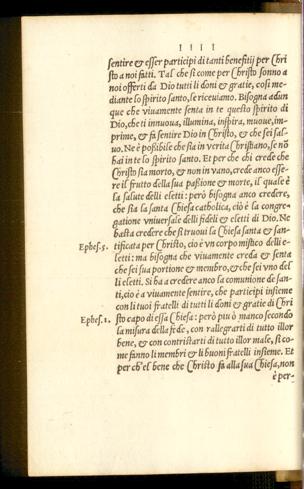 IIII
sentire & esser participi di tanti benefitij per Chri
sto a noi fatti. Tal che si come per Christo sonno a
noi offerti da Dio tutti li doni & gratie, cosi me-
diante lo spirito santo, se riceuiamo. Bisogna adun
que che viuamente senta in te questo spirito di
Dio, che ti innoua, illumina, inspira, muoue, im-
prime, & fa sentire Dio in Christo, & che sei sal-
uo. Ne è possibile che sia in verita Christiano, se nõ
hai in te lo spirito santo. Et per che chi crede che
Christo sia morto, & non in vano, crede anco esse-
re il frutto della sua passione & morte, il quale è
la salute delli eletti: però bisogna anco credere,
che sia la santa Chiesa catholica, ciò è la congre-
gatione vniuersale delli fideli & eletti di Dio. Ne
basta credere che si truoui la Chiesa santa & san-
Ephes.5. tificata per Christo, cio è vn corpo mistico delli e-
letti: ma bisogna che viuamente creda & senta
che sei sua portione & membro, & che sei vno del
li eletti. Si ha a credere anco la comunione de san-
ti, cio è a viuamente sentire, che participi insieme
con li tuoi fratelli di tutti li doni & gratie di Chri
Ephes.1. sto capo di essa Chiesa: però piu ò manco secondo
la misura della fede, con rallegrarti di tutto illor
bene, & con contristarti di tutto illor male, si co-
me fanno li membri & li buoni fratelli insieme. Et
per ch'el bene che Christo fa alla sua Chiesa, non
è per-